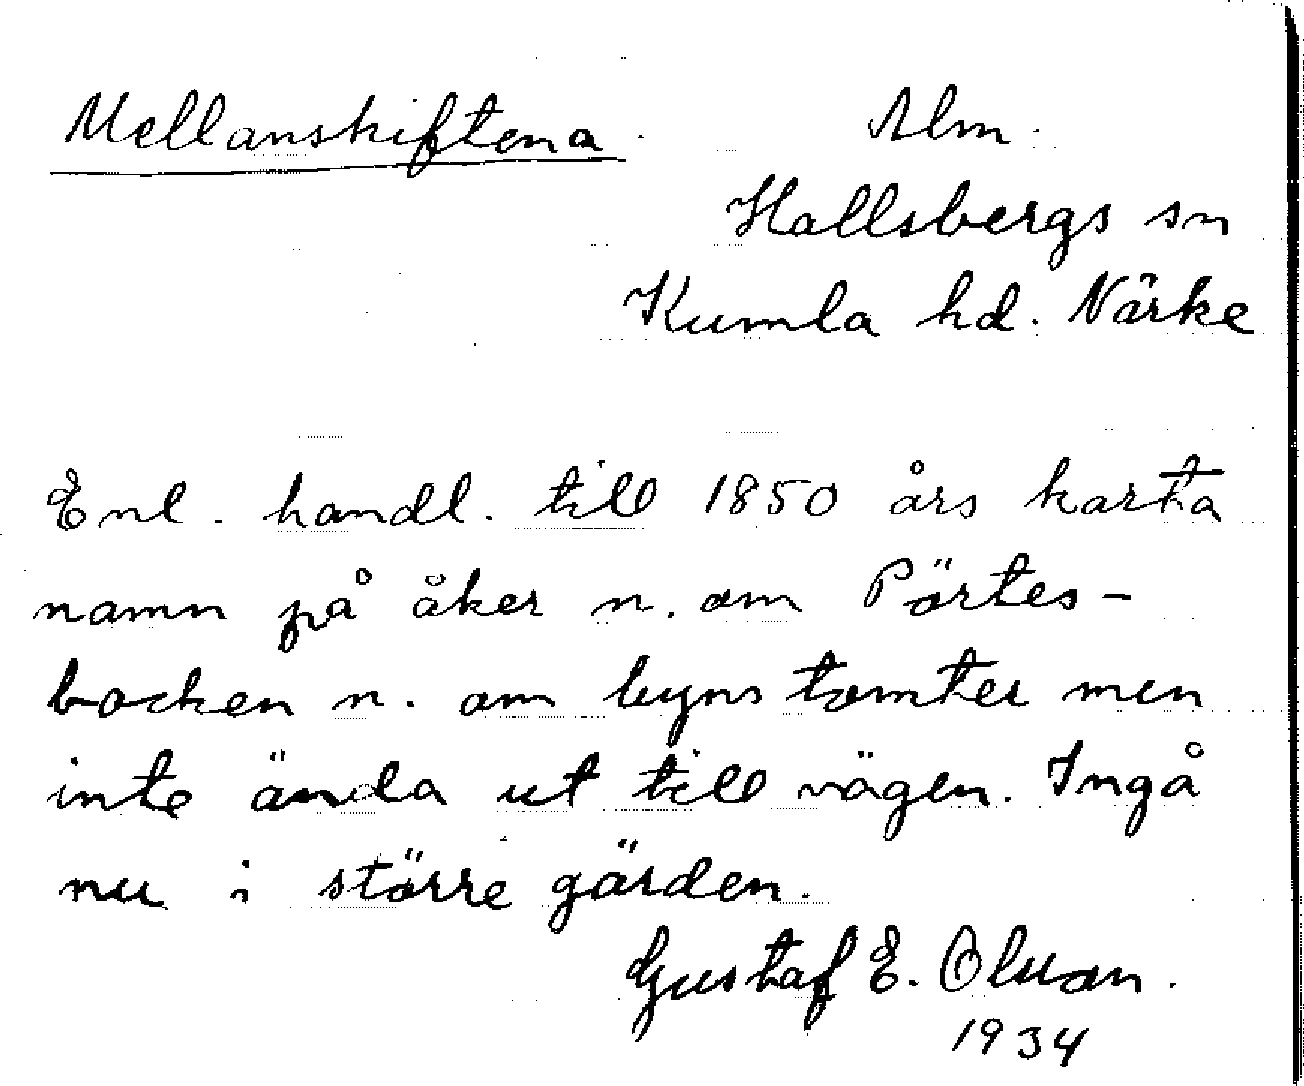 Mellanskiftena. Alm.
Hallsbergs sn
Kumla hd. Närke
Enl. handl. till 1850 års karta
namn på åker n. om Pörtes-
backen n. om byns tomter men
inte ända ut till vägen. Ingå
nu i större gärden.
Gustaf E. Olsson.
1934